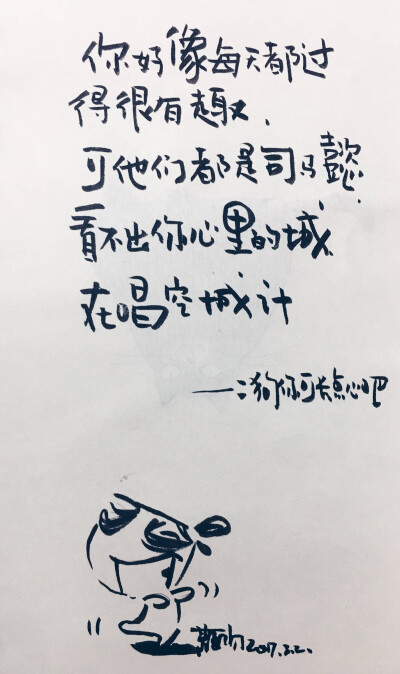 你好像每天都过
得很有趣、
可他们都是司马懿
看不出你心里的城
在唱空城计
——二狗你可长点心吧
2017.2.2.